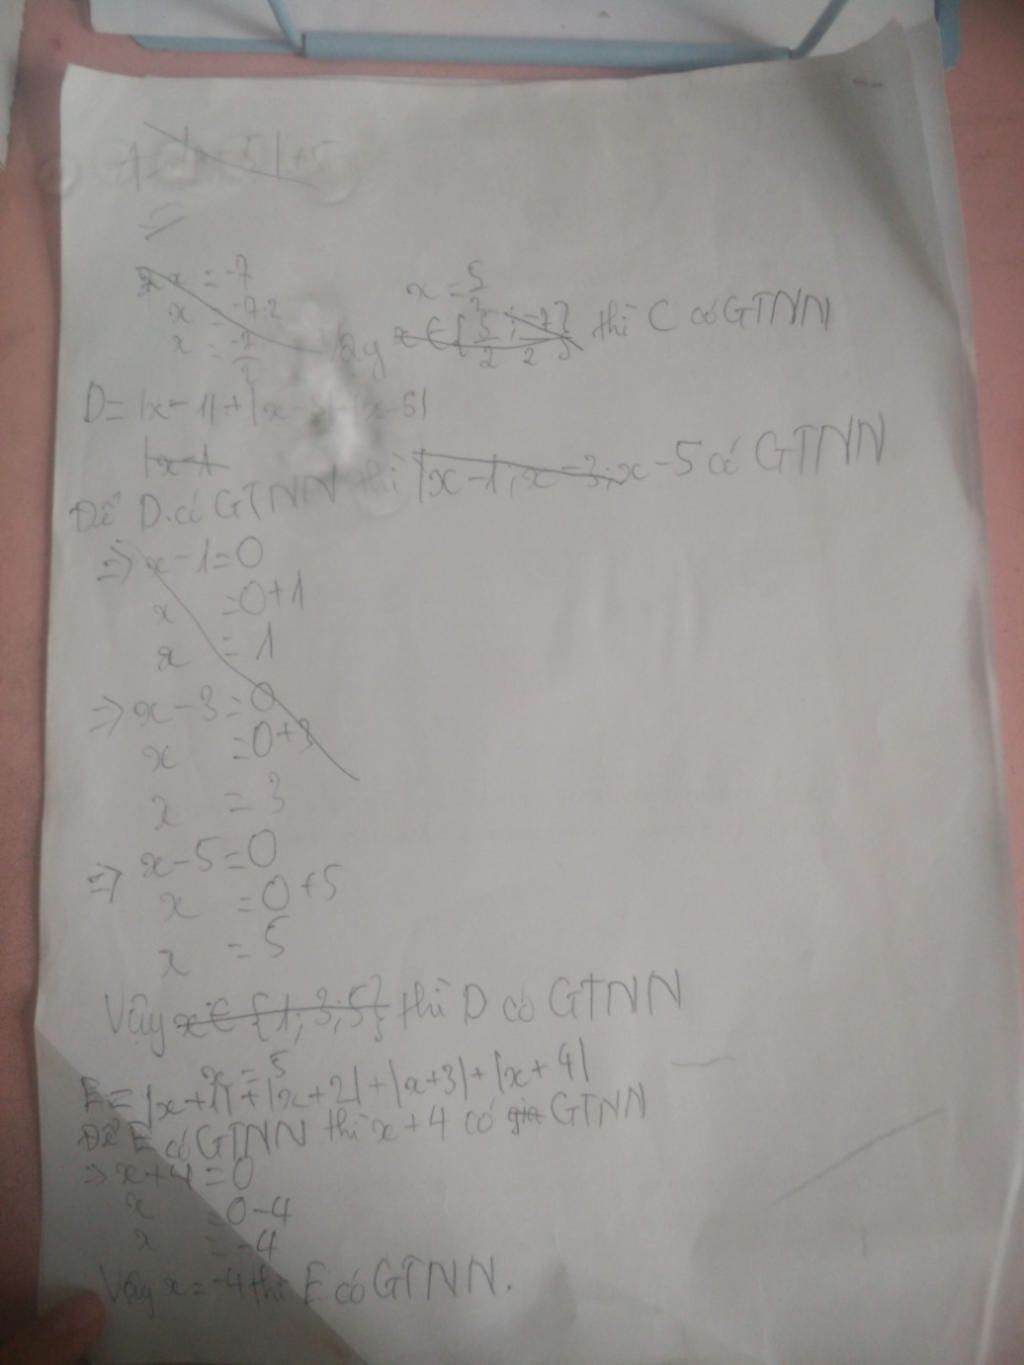 5|+5
=
x = -7
x = 5
x = -7:2
x = -7/2
Vậy x ∈ {5/2; -7/2} thì C có GTNN
D = |x-1| + |x-3| + |x-5|
|x-1
Để D có GTNN thì |x-1; x-3; x-5 có GTNN
=> x-1=0
x =0+1
x = 1
=> x-3=0
x =0+3
x = 3
=> x-5=0
x =0+5
x = 5
Vậy x ∈ {1; 3; 5} thì D có GTNN
x = 5
E = |x+1| + |x+2| + |x+3| + |x+4|
Để E có GTNN thì x+4 có giá GTNN
=> x+4=0
x = 0-4
x = -4
Vậy x = -4 thì E có GTNN.